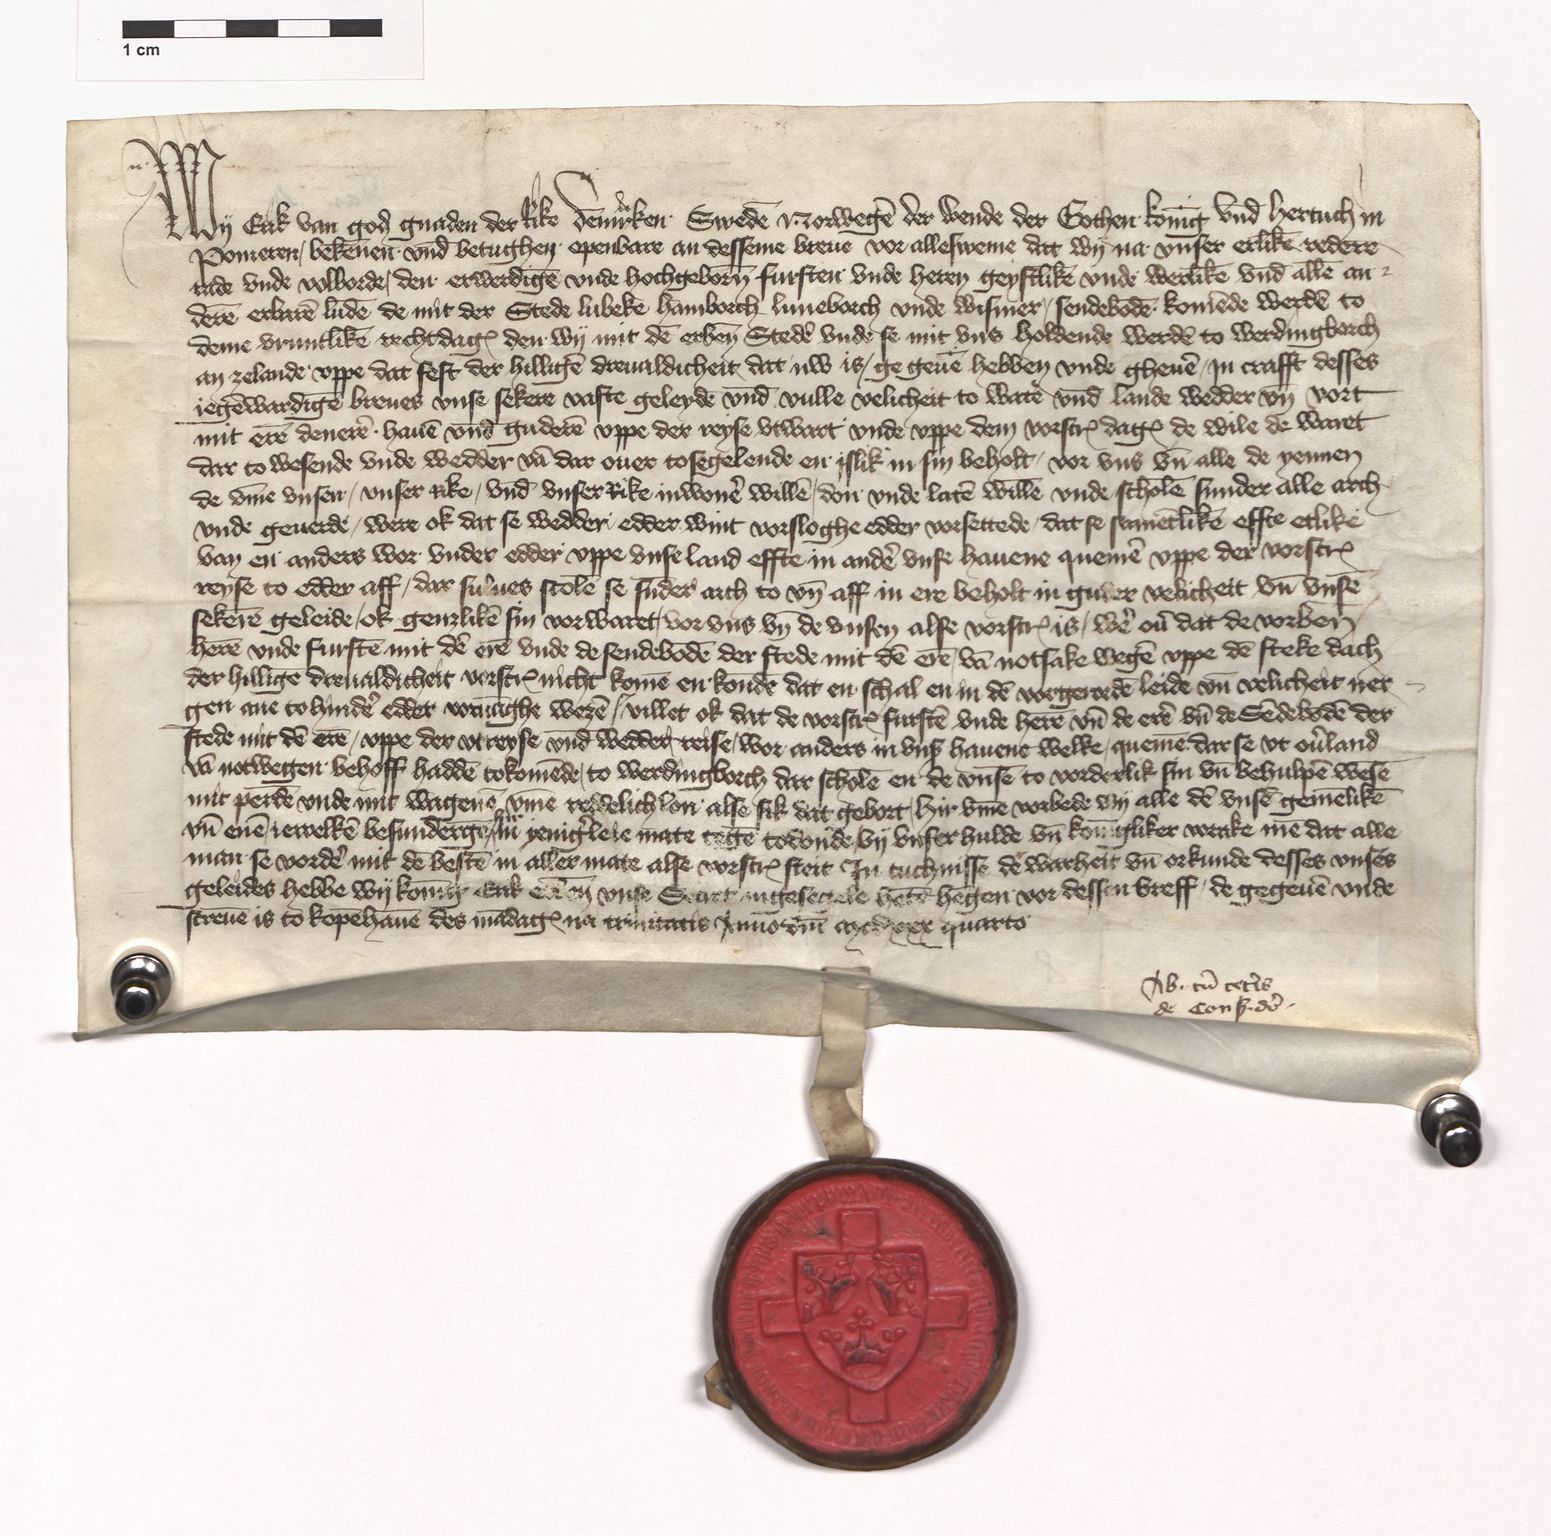 1 cm
Wij Erik van god gnaden der Rike Denmrken Swedē Norwegē der Wende der Gothen konig vnd hertuch in
Pomeren / bekēnen vnd betughen openbare an desseme breue vor allesweme dat wij na vnser erlikē redere
rade vnde volborde / den erwerdigē vnde hochgeborn fursten vnde heren geystlikē vnde werlikē vnd alle an
derē erbarē ludē de mit der Stede lubeke hamborch luneborch vnde wismer / sendebodē komēde werdē to
deme vruntlikē rechtdag den wij mit dē erben Stedē vnde se mit vns holdende werdē to werdingborch
an zelande vppe dat fest der hilligē dreualdicheit dat nw is / ge geuē hebben vnde gheuē / in crafft desses
iegēwardigē breues vnse sekere vaste geleyde vnd vulle velicheit to watē vnd lande wedder vn vort
mit erē denerē hauē vnd guderē vppe der reyse vtwart vnde vppe dem vorscr dag de wile de waret
dar to wesende vnde wedder vā dar ouer tosegelende en islik in sin beholt / vor vns vn alle de yennen
de vme vnsen / vnser rike / vnd vnser Rike inwonē willē / don vnde latē willē vnde scholē sunder alle arch
vnde geuerde / were ok dat se wedder edder wint vorsloghe edder vorsettede / dat se sametlikē effte etlike
van en anders wor vnder edder vppe vnse land effte in andē vnse hauene quemē vppe der vorscr
reyse to edder aff / dar sulues scolē se sūder arch to vn aff in ere beholt in guder velicheit vn vnsē
sekerē geleide / ok genzlikē sin vorwaret / vor vns vn de vnsen alse vorscr is / wē ou dat de vorben
herē vnde furstē mit dē erē vnde de sendebodē der stede mit dē erē vā notsake wegē vppe dē steke dach
der hilligē dreualdicheit vorscr nicht komē en konde dat en schal en in dē vorgerordē leide vn velicheit ner
gen ane to hindē edder voruāghe wezē / villet ok dat de vorscr furstē vnde herē vn de erē vn de Sēdebodē der
stede mit dē erē / vppe der vtreyse vnd wedder reise / wor anders in vnse hauene welke / quemē dar se vt ouland
vā notwegen behoff haddē tokomēde / to werdingborch dar scholē en de vnsē to vorderlik sin vn behulpē wesē
mit perdē vnde mit wagenē vme redelich lon alse sik dat gebort / hir vme vorbede wij alle dē vnsē gemēlikē
vn enē iewelkē besundergē / hir yenigleie mate tegē todonde / bij vnser hulde vn konigliker wrake mē dat alle
man se vordē mit dē bestē in aller mate alse vorscr steit In tuchnisse de warheit vn orkunde desses vnses
geleides hebbe wij konig Erik vnse Secret ingesegele hetē hēgen vor dessen breff / de gegeuē vnde
screue is to kopēhauē des mādag na trinitatis Anno dni mcdxxx quarto
Ab. cū ceteris
de Cons. dē